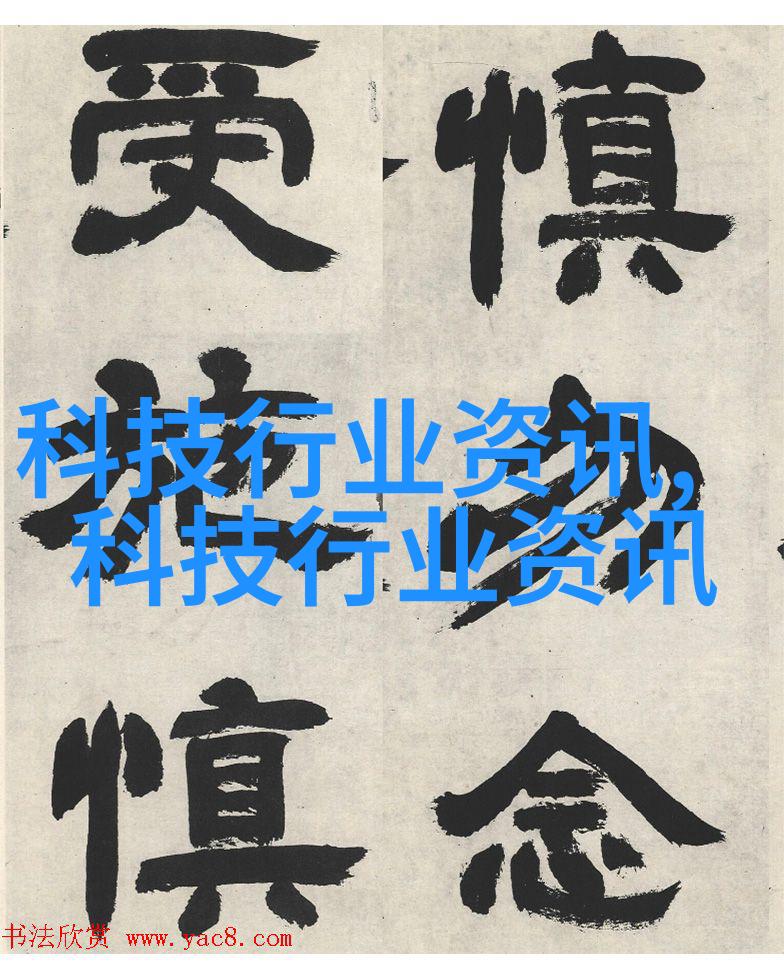 慎勿念
受施慎
科技行业资讯,
科技行业资讯
书法欣赏 www.yac8.com